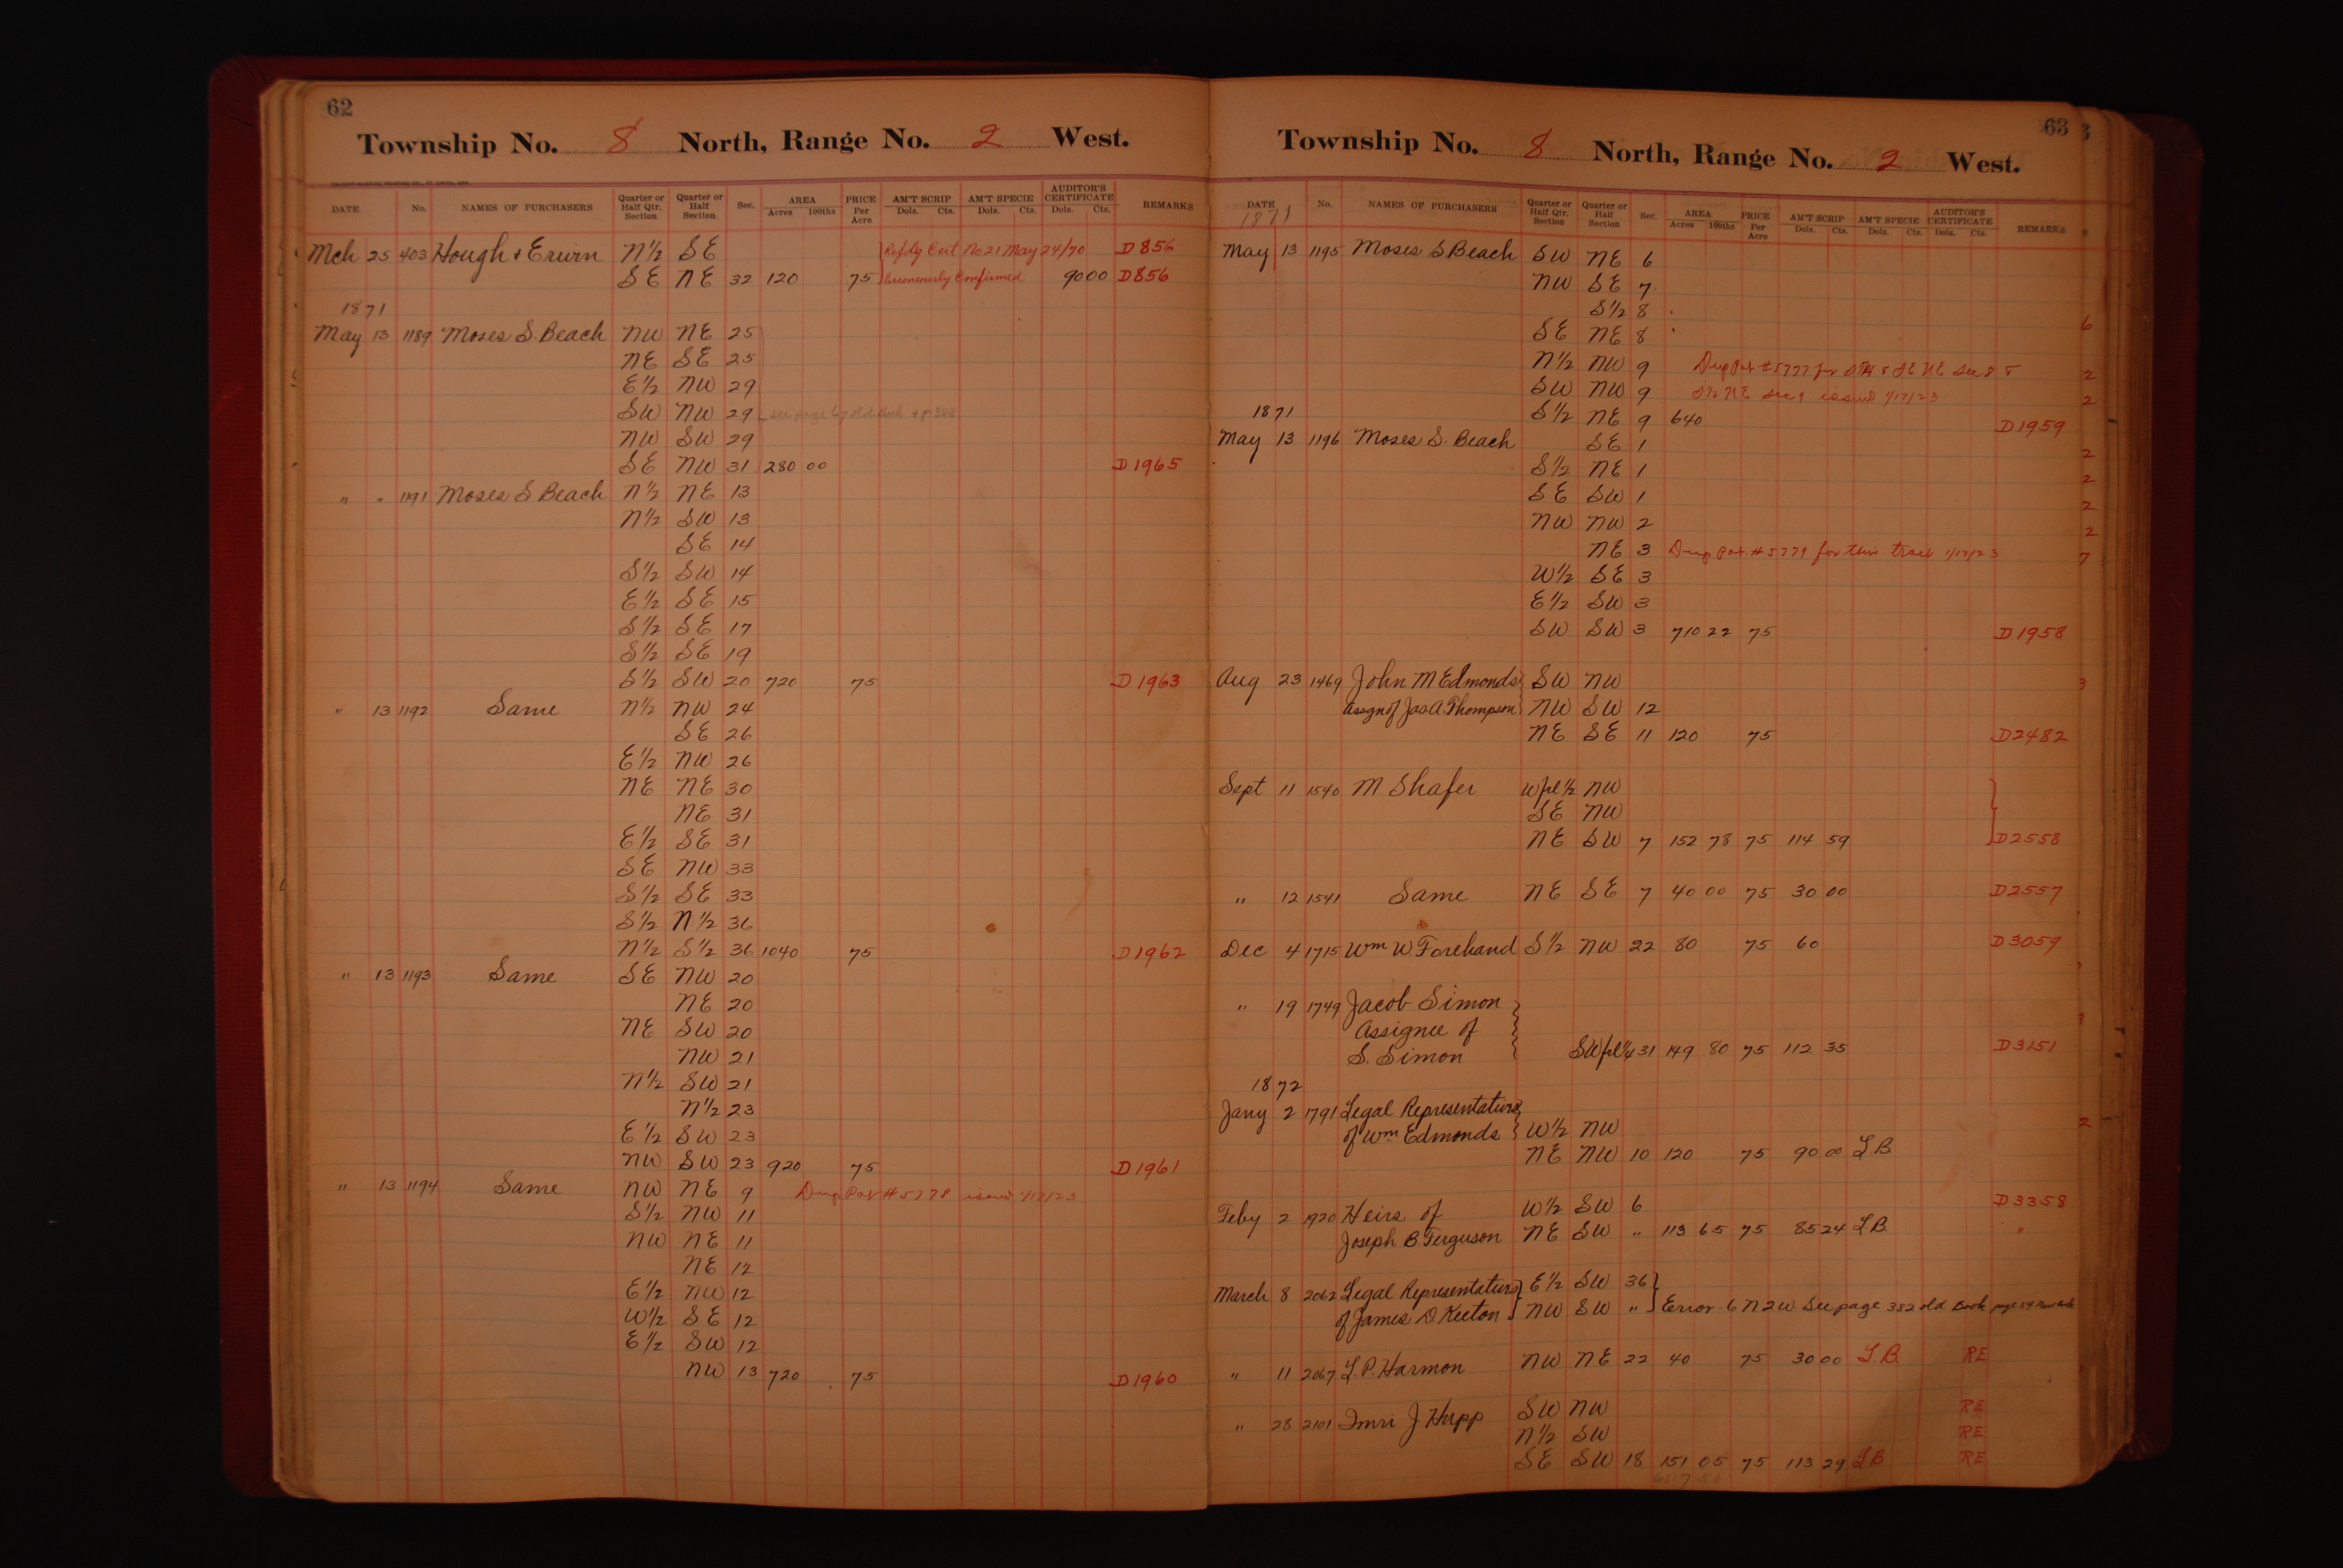 62
Township No. 8 North, Range No. 2 West.
DATE No. NAMES OF PURCHASERS Quarter or Half Qtr. Section Quarter or Half Section Sec. AREA Acres 100ths PRICE Per Acre AM'T SCRIP Dols. Cts. AM'T SPECIE Dols. Cts. AUDITOR'S CERTIFICATE Dols. Cts. REMARKS
Mch 25 403 Hough & Erwin N½ SE Cert No 21 May 24/70 D856
SE NE 32 120 75 Erroneously Confirmed 90 00 D856
1871
May 13 1189 Moses S. Beach NW NE 25
NE SE 25
E½ NW 29
SW NW 29 see page 67 old Book
NW SW 29
SE NW 31 280 00 D1965
" " 1191 Moses S Beach N½ NE 13
N½ SW 13
SE 14
S½ SW 14
E½ SE 15
S½ SE 17
S½ SE 19
S½ SW 20 720 75 D1963
" 13 1192 Same N½ NW 24
SE 26
E½ NW 26
NE NE 30
NE 31
E½ SE 31
SE NW 33
S½ SE 33
S½ N½ 36
N½ S½ 36 1040 75 D1962
" 13 1193 Same SE NW 20
NE 20
NE SW 20
NW 21
N½ SW 21
N½ 23
E½ SW 23
NW SW 23 920 75 D1961
" 13 1194 Same NW NE 9 Dup Pat #5778 issued 1/17/23
S½ NW 11
NW NE 11
NE 12
E½ NW 12
W½ SE 12
E½ SW 12
NW 13 720 75 D1960
63
Township No. 8 North, Range No. 2 West.
DATE No. NAMES OF PURCHASERS Quarter or Half Qtr. Section Quarter or Half Section Sec. AREA Acres 100ths PRICE Per Acre AM'T SCRIP Dols. Cts. AM'T SPECIE Dols. Cts. AUDITOR'S CERTIFICATE Dols. Cts. REMARKS
1871
May 13 1195 Moses S Beach SW NE 6
NW SE 7
S½ 8
SE NE 8
N½ NW 9 Dup Pat #5777 for S½ & SE NE Sec 8 &
SW NW 9 S½ NE Sec 9 issued 1/17/23
1871 S½ NE 9 640 D1959
May 13 1196 Moses S. Beach SE 1
S½ NE 1
SE SW 1
NW NW 2
NE 3 Dup Pat #5779 for this tract 1/17/23
W½ SE 3
E½ SW 3
SW SW 3 710 22 75 D1958
Aug 23 1469 John M Edmonds SW NW
Assgn of Jas A. Thompson NW SW 12
NE SE 11 120 75 D2482
Sept 11 1540 M Shafer W frl ½ NW
SE NW
NE SW 7 152 78 75 114 59 D2558
" 12 1541 Same NE SE 7 40 00 75 30 00 D2557
Dec 4 1715 Wm W Forehand S½ NW 22 80 75 60 D3059
" 19 1749 Jacob Simon
Assignee of
S. Simon SW frl ¼ 31 149 80 75 112 35 D3151
1872
Jany 2 1791 Legal Representatives
of Wm Edmonds W½ NW
NE NW 10 120 75 90 00 LB
Feby 2 1920 Heirs of W½ SW 6 D3358
Joseph B. Ferguson NE SW " 113 65 75 85 24 LB "
March 8 2062 Legal Representatives E½ SW 36
of James D Keeton NW SW " Error 6 N 2 W See page 382 old Book page
" 11 2067 L.P. Harmon NW NE 22 40 75 30 00 L.B. RE
" 28 2101 Imri J Hupp SW NW RE
N½ SW RE
SE SW 18 151 05 75 113 29 LB RE